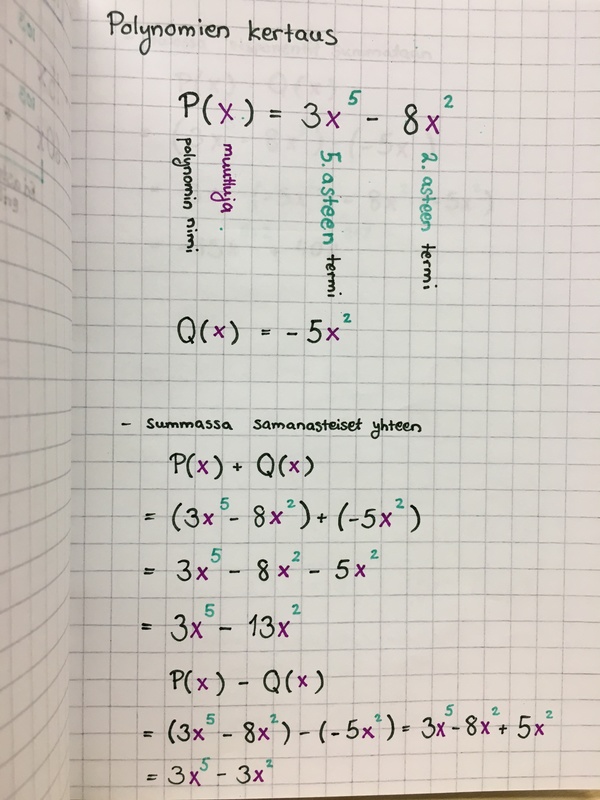 Polynomien kertaus
P(x) = 3x⁵ - 8x²
polynomin nimi
muuttuja
5. asteen termi
2. asteen termi
Q(x) = -5x²
- Summassa samanasteiset yhteen
P(x) + Q(x)
= (3x⁵ - 8x²) + (-5x²)
= 3x⁵ - 8x² - 5x²
= 3x⁵ - 13x²
P(x) - Q(x)
= (3x⁵ - 8x²) - (-5x²) = 3x⁵ - 8x² + 5x²
= 3x⁵ - 3x²